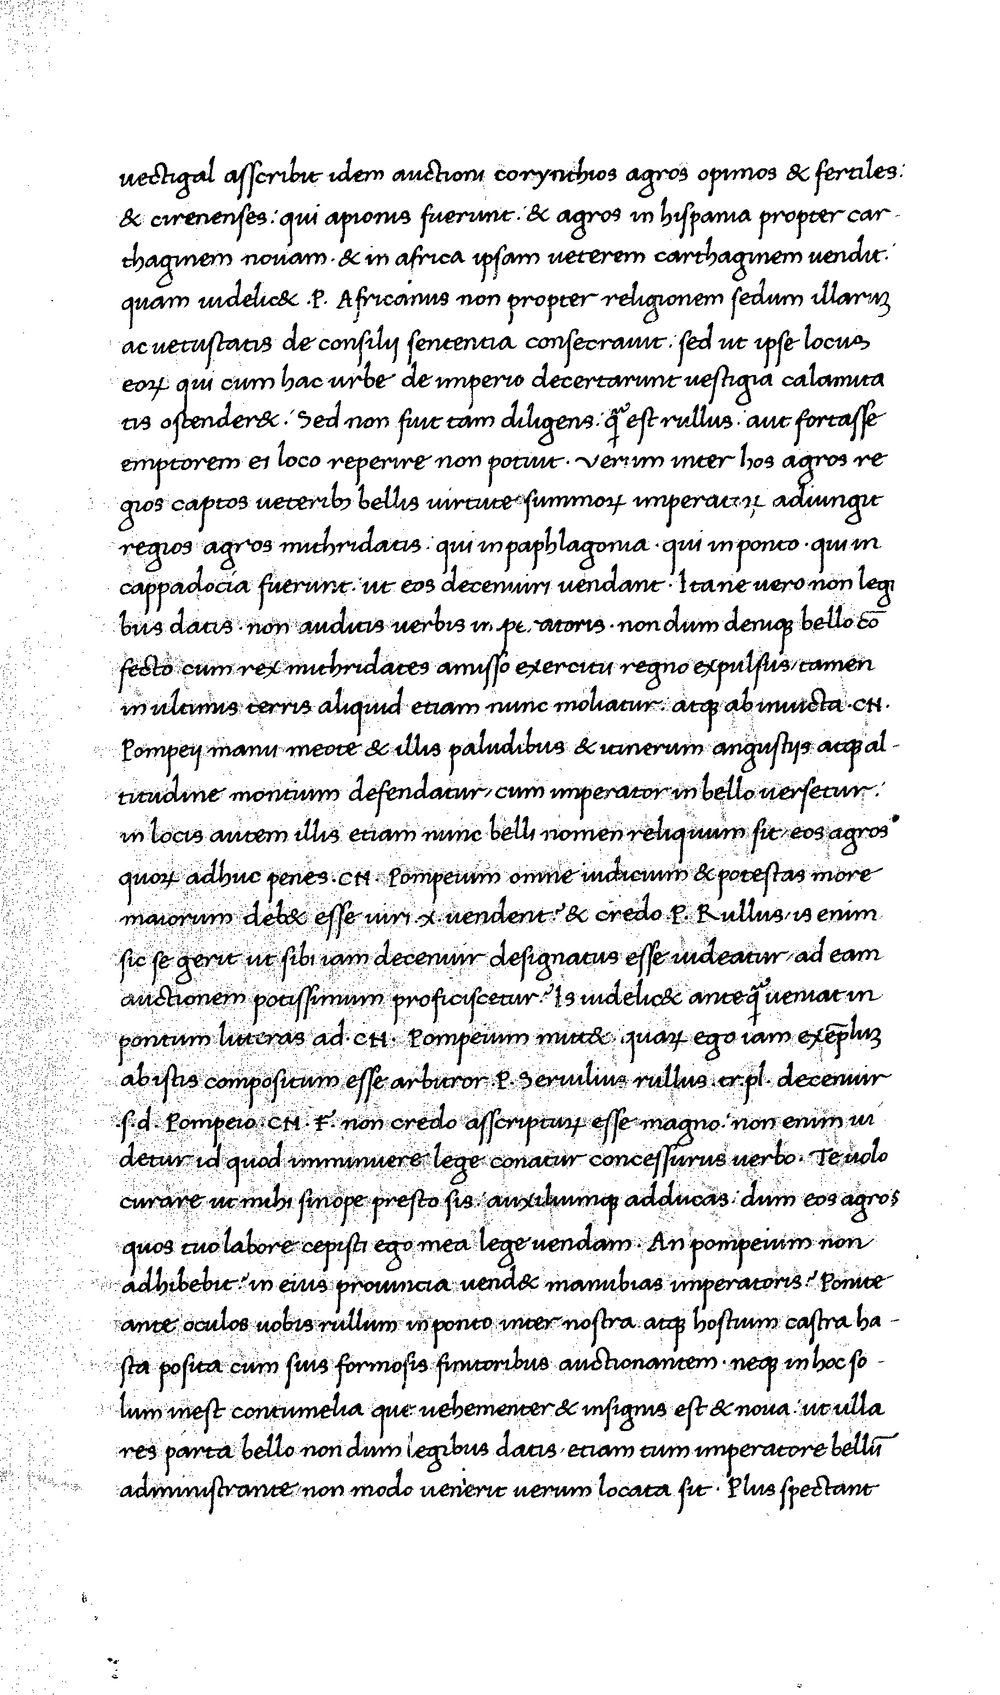 uectigal asscribit idem auctioni corynthios agros opimos & fertiles:
& cirenenses: qui apionis fuerunt: & agros in hispania propter car-
thaginem nouam. & in africa ipsam ueterem carthaginem uendit:
quam uidelic& .P. Africanus non propter religionem sedum illaruꝫ
ac uetustatis de consilij sententia consecrauit: sed ut ipse locus
eoꝝ qui cum hac urbe de imperio decertarunt uestigia calamita
tis ostender&. Sed non fuit tam diligens: q̃ est rullus. aut fortasse
emptorem ei loco reperire non potuit. Verum inter hos agros re
gios captos ueteribꝫ bellis uirtute summoꝝ imperatoꝝ adiungit
regios agros mithridatis: qui in paphlagonia. qui in ponto. qui in
cappadocia fuerunt. ut eos decemuiri uendant. Itane uero non legi
bus datis. non auditis uerbis imperatoris. non dum deniqꝫ bello cō
fecto cum rex mithridates amisso exercitu regno expulsus/ tamen
in ultimis terris aliquid etiam nunc moliatur. atqꝫ ab inuicta .CN.
Pompeij manu meote & illis paludibus & itinerum angustijs atqꝫ al-
titudine montium defendatur/ cum imperator in bello uersetur:
in locis autem illis etiam nunc belli nomen reliquum sit/ eos agros
quoꝝ adhuc penes .CN. Pompeium omne iudicium & potestas more
maiorum deb& esse uiri .x. uendent? & credo .P. Rullus/ is enim
sic se gerit ut sibi iam decemuir designatus esse uideatur/ ad eam
auctionem potissimum proficiscetur? Is uidelic& anteq̃ ueniat in
pontum litteras ad .CN. Pompeium mitt&. quaꝝ ego iam exēpluꝫ
ab istis compositum esse arbitror .P. Seruilius rullus .tr.pl. decemuir
.s.d. Pompeio .CN. F. non credo asscriptuꝝ esse magno: non enim ui
detur id quod imminuere lege conatur concessurus uerbo. Te uolo
curare ut mihi sinope presto sis. auxiliumqꝫ adducas: dum eos agros
quos tuo labore cepisti ego mea lege uendam. An pompeium non
adhibebit? in eius prouincia uend& manubias imperatoris? Ponite
ante oculos uobis rullum in ponto inter nostra atqꝫ hostium castra ha-
sta posita cum suis formosis finitoribus auctionantem. neqꝫ in hoc so-
lum inest contumelia que uehementer & insignis est & noua. ut ulla
res parta bello non dum legibus datis. etiam tum imperatore bellū
administrante/ non modo uenierit uerum locata sit. Plus spectant